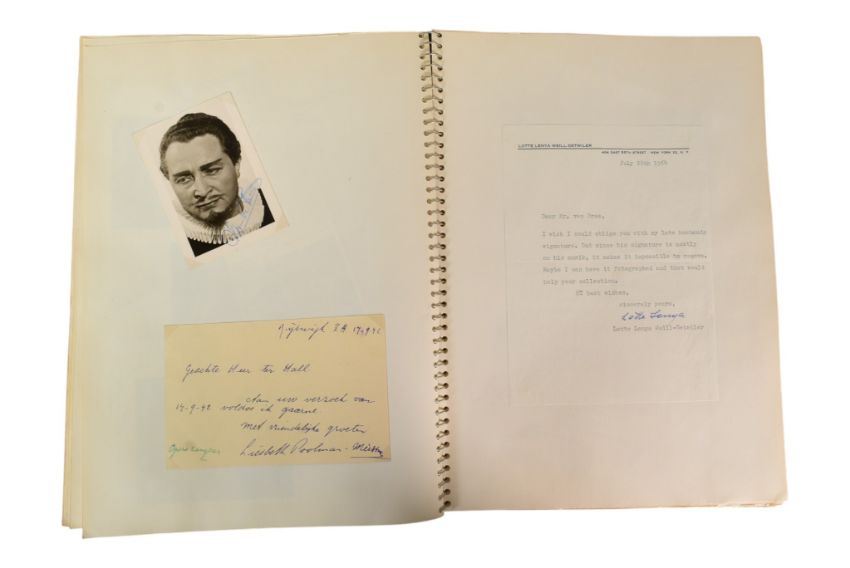 Rijswijk Z.H. 17-9-42
Geachte Heer ter Hall
Aan uw verzoek van
14-9-42 voldoe ik gaarne.
Met vriendelijke groeten
Liesbeth Poolman-
Operazangeres
LOTTE LENYA WEILL-DETWILER
404 EAST 55TH STREET, NEW YORK 22, N. Y.
July 1964
Dear Mr. van Bree,
I wish I could oblige you with my late husbands
signature. But since his signature is mostly
on his musik, it makes it impossible to remove.
Maybe I can have it fotographed and that would
help your collection.
best wishes,
sincerely yours,
Lotte Lenya
Lotte Lenya Weill-Detwiler